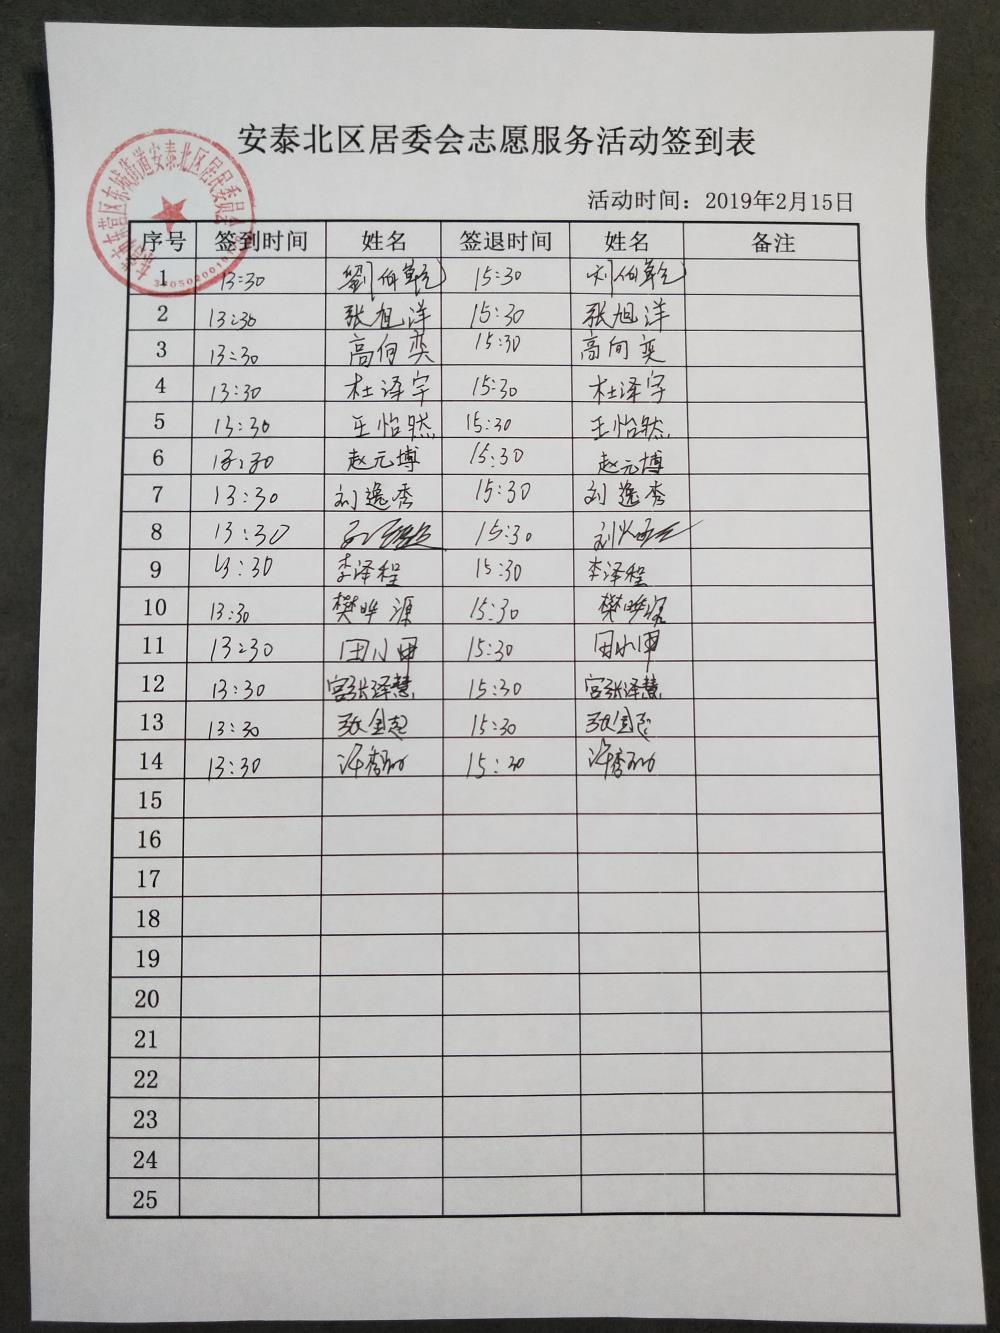 安泰北区居委会志愿服务活动签到表
活动时间：2019年2月15日
东营市东营区东城街道安泰北区居民委员会
序号 签到时间 姓名 签退时间 姓名 备注
1 13:30 劉伯乾 15:30 刘伯乾
2 13:30 张旭洋 15:30 张旭洋
3 13:30 高向奕 15:30 高向奕
4 13:30 杜泽宇 15:30 杜泽宇
5 13:30 王怡然 15:30 王怡然
6 13:30 赵元博 15:30 赵元博
7 13:30 刘逸秀 15:30 刘逸秀
8 13:30 15:30 刘
9 13:30 李泽程 15:30 李泽程
10 13:30 樊晔源 15:30 樊晔源
11 13:30 田小甲 15:30 田小甲
12 13:30 宫张泽慧 15:30 宫张泽慧
13 13:30 张金 15:30 张金
14 13:30 许秀 15:30 许秀
15
16
17
18
19
20
21
22
23
24
25